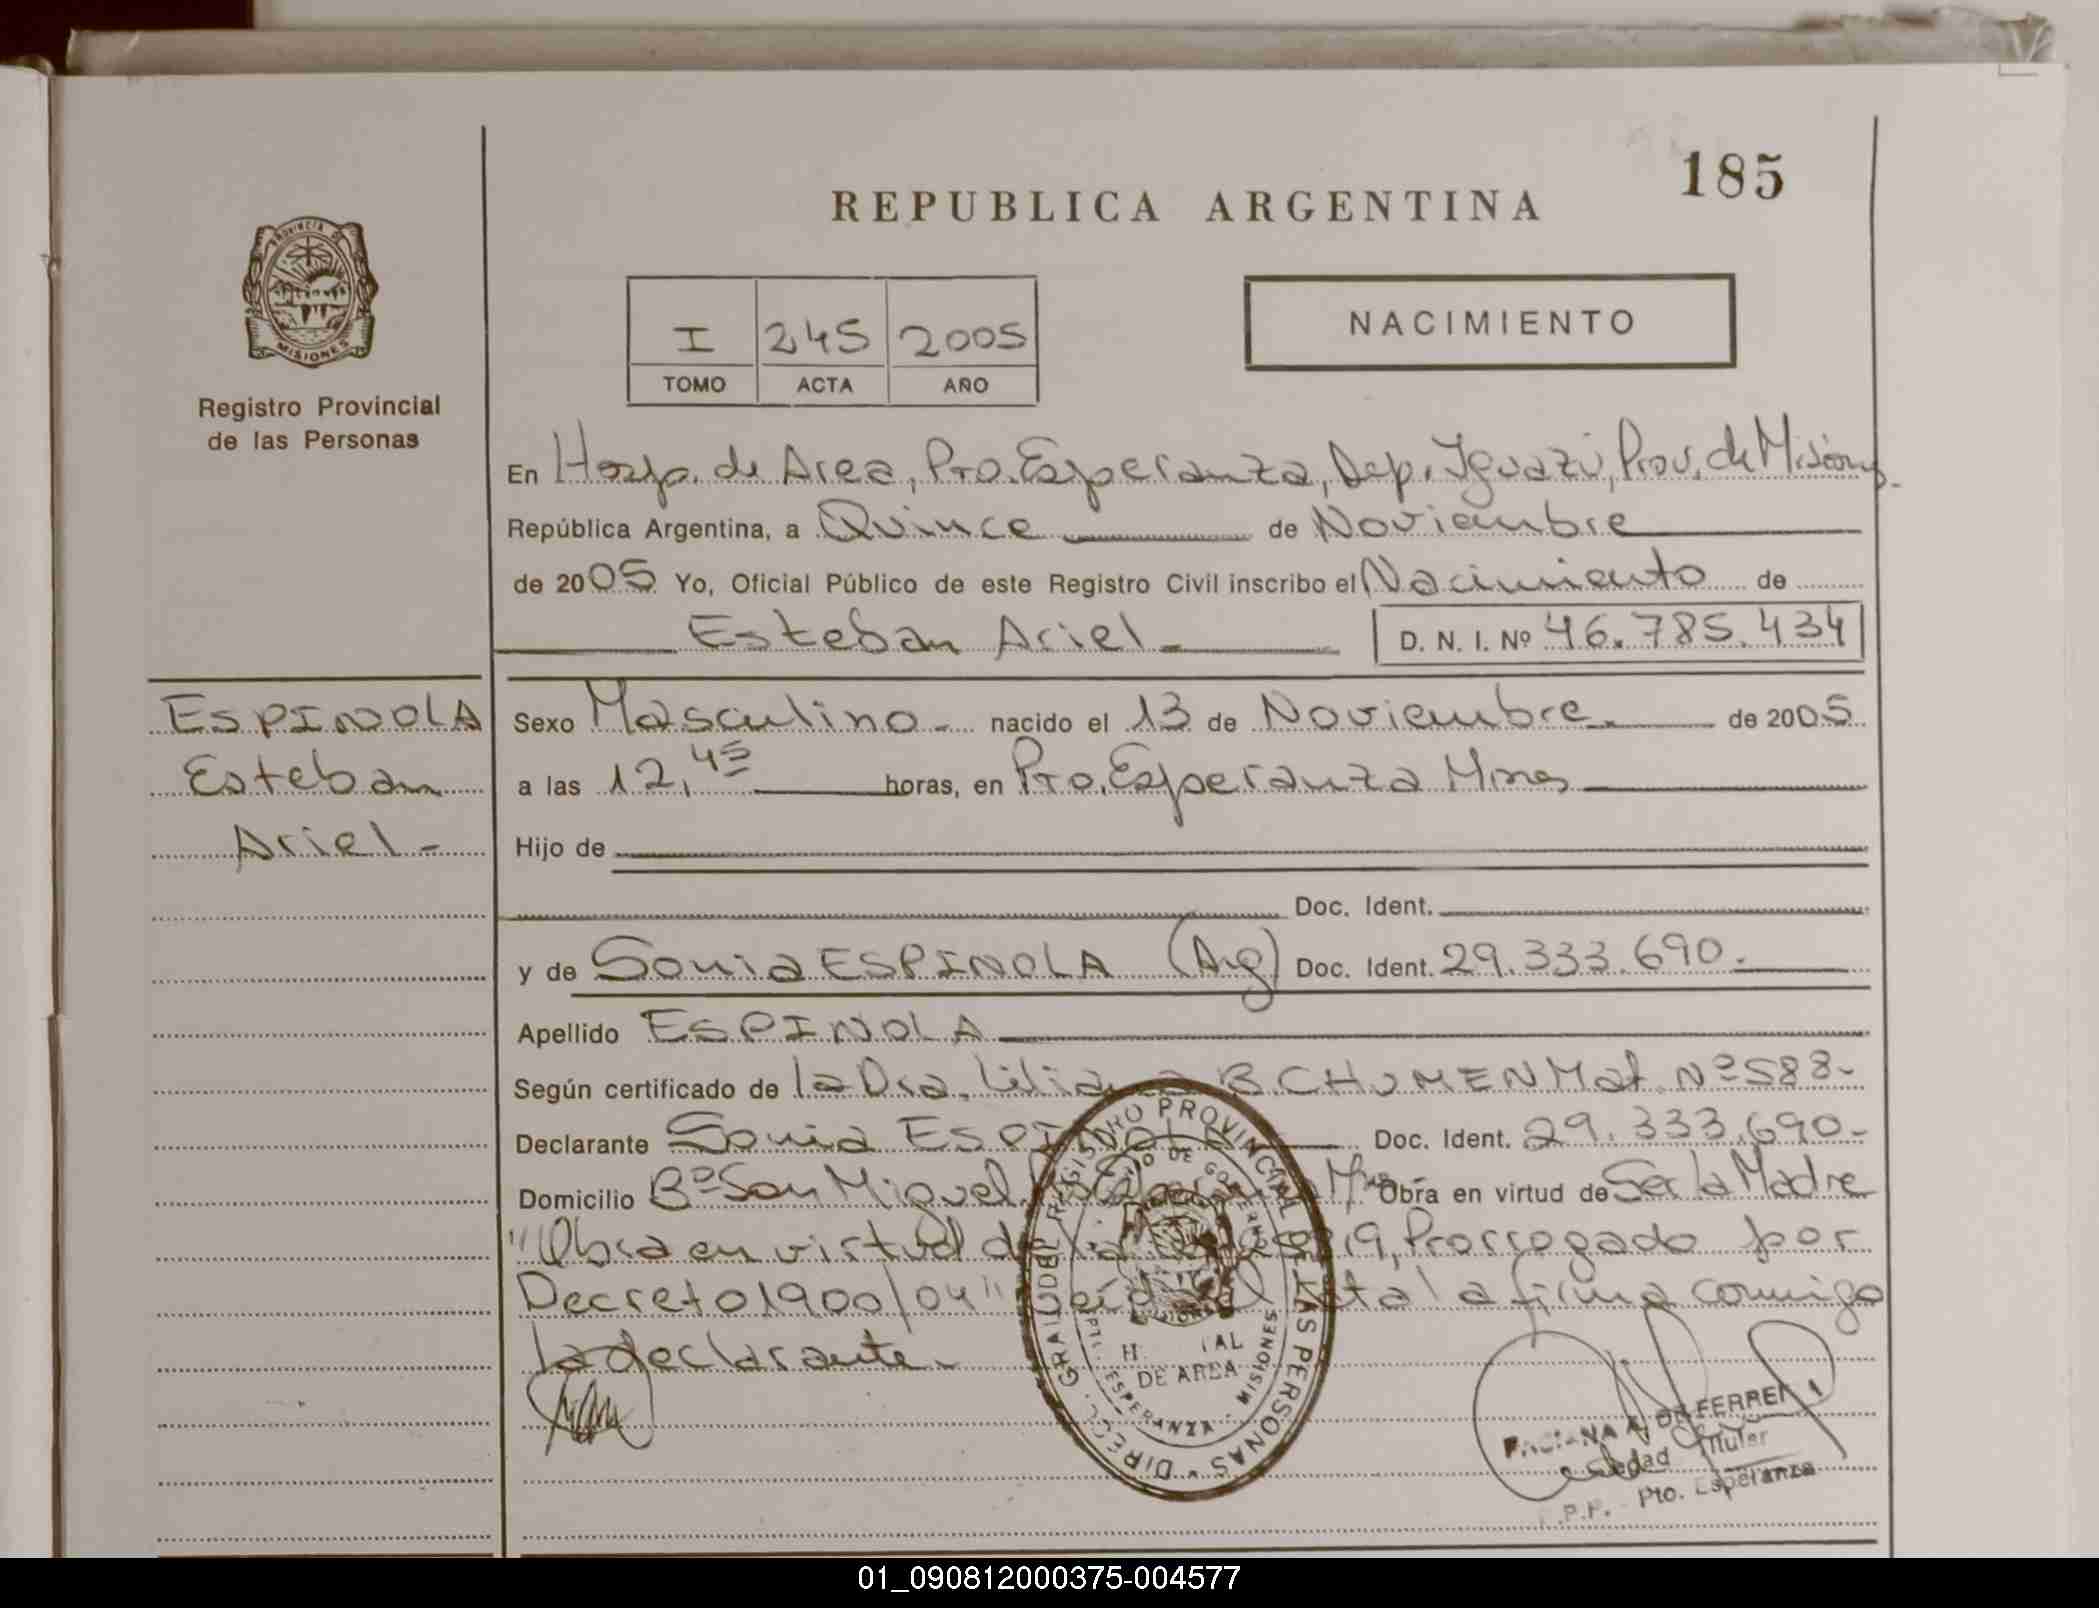 185
REPUBLICA ARGENTINA
PROVINCIA DE
MISIONES
Registro Provincial
de las Personas
I 245 2005
TOMO ACTA AÑO
NACIMIENTO
En Hosp. de Area, Pto. Esperanza, Dep. Iguazú, Prov. de Misiones.
República Argentina, a Quince de Noviembre
de 2005 Yo, Oficial Público de este Registro Civil inscribo el Nacimiento de
Esteban Ariel - D. N. I. Nº 46.785.434
ESPINOLA
Esteban
Ariel -
Sexo Masculino - nacido el 13 de Noviembre. de 2005
a las 12,45 horas, en Pto. Esperanza Mnes
Hijo de
Doc. Ident.
y de Sonia ESPINOLA (Arg) Doc. Ident. 29.333.690.
Apellido ESPINOLA
Según certificado de la Dra. Liliana B. CHUMEN Mat. Nº 588-
Declarante Sonia ESPINOLA Doc. Ident. 29.333.690-
Domicilio Bº San Miguel Obra en virtud de Ser la Madre
"Obra en virtud de la Prorrogado por
Decreto 1900/04" Leída el Acta la firma conmigo
la declarante.
DIRECC. GRAL. DEL REGISTRO PROVINCIAL DE LAS PERSONAS
DE AREA
ESPERANZA - MISIONES
A. DE FERREI
Titular
Pto. Esperanza
01_090812000375-004577